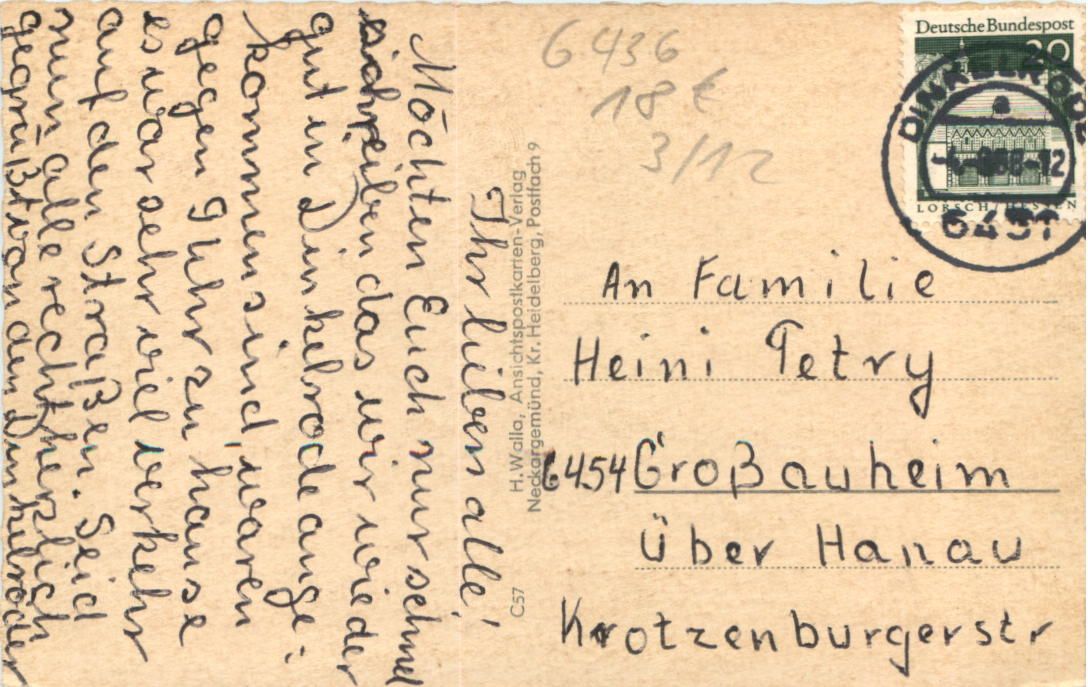 Ihr lieben alle!
Möchten Euch nur schnel
schreiben das wir wieder
gut in Dinkelrode ange:
kommen sind, waren
gegen 9 Uhr zu hause
es war sehr viel verkehr
auf den Straßen. Seid
nun alle recht herzlich
gegrüßt von den Dinkelröder
H. Walla, Ansichtspostkarten-Verlag
Neckargemünd, Kr. Heidelberg, Postfach 9
C57
6436
18 €
3/12
Deutsche Bundespost
20
LORSCH/HESSEN
DINKELRODE
a
6431
An Familie
Heini Petry
6454 Großauheim
über Hanau
Krotzenburgerstr